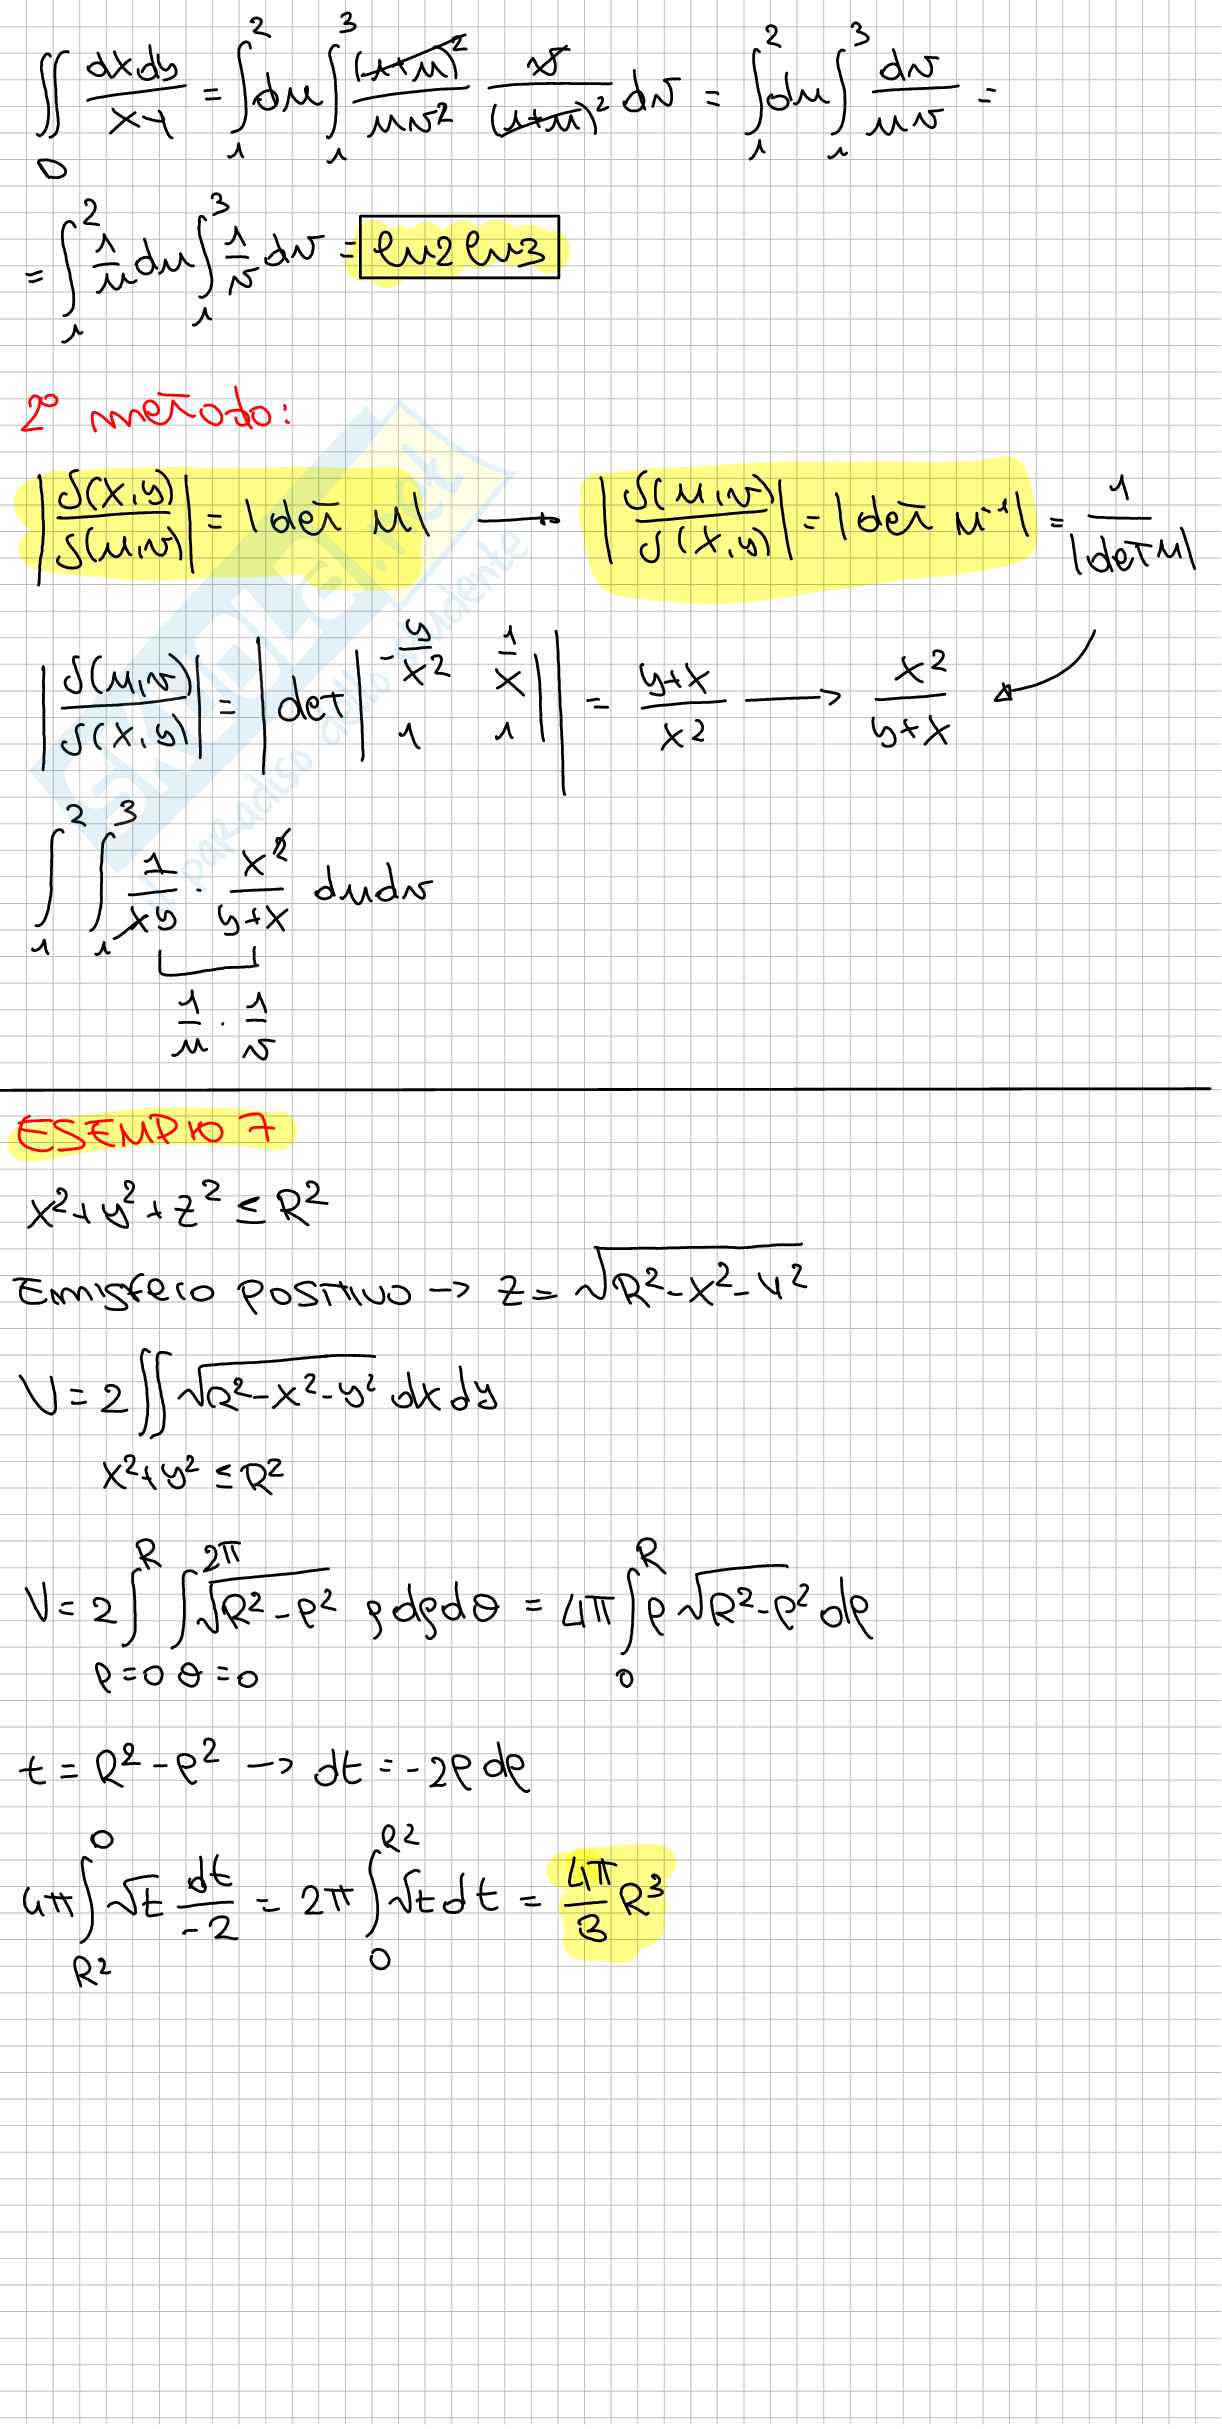 ∬_D dxdy/xy = ∫₁² du ∫₁³ (1+u)²/uv² v/(1+u)² dv = ∫₁² du ∫₁³ dv/uv =
= ∫₁² 1/u du ∫₁³ 1/v dv = ln2 ln3
2° metodo:
|∂(x,y)/∂(u,v)| = |det M| → |∂(u,v)/∂(x,y)| = |det M⁻¹| = 1/|det M|
|∂(u,v)/∂(x,y)| = |det | -y/x² 1/x ; 1 1 || = y+x/x² → x²/y+x
∫₁² ∫₁³ 1/xy · x²/y+x dudv
1/u · 1/v
ESEMPIO 7
x²+y²+z² ≤ R²
Emisfero positivo → z = √(R²-x²-y²)
V = 2 ∬ √(R²-x²-y²) dx dy
x²+y² ≤ R²
V = 2 ∫_{ρ=0}^{R} ∫_{θ=0}^{2π} √(R²-ρ²) ρ dρ dθ = 4π ∫₀^R ρ √(R²-ρ²) dρ
t = R²-ρ² → dt = -2ρ dρ
4π ∫_{R²}^{0} √t dt/-2 = 2π ∫₀^{R²} √t dt = 4π/3 R³
SKUOLA.net
il paradiso dello studente